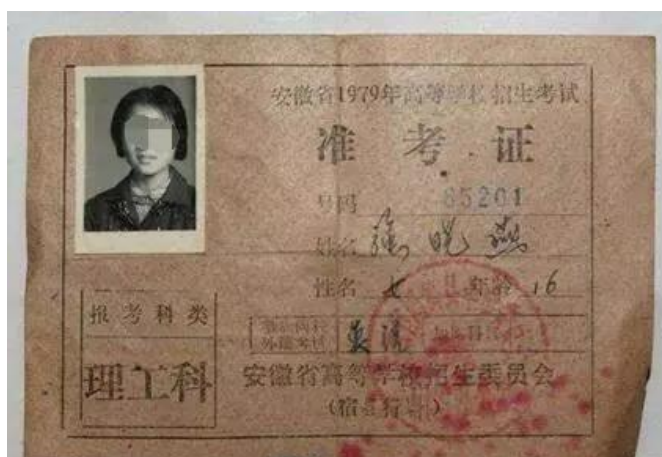 安徽省1979年高等学校招生考试
准考证
号码 65201
姓名
性名 女 年龄 16
报考科类
理工科
英语
安徽省高等学校招生委员会
(宿县行署)